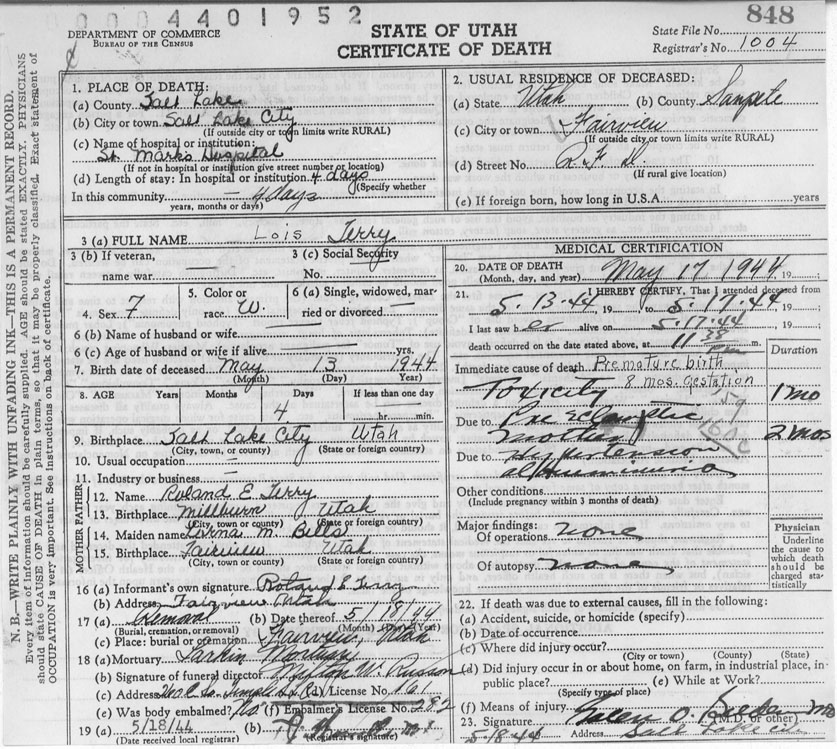 0 0 0 4 4 0 1 9 5 2
848
DEPARTMENT OF COMMERCE
BUREAU OF THE CENSUS
STATE OF UTAH
CERTIFICATE OF DEATH
State File No.
Registrar's No. 1004
N. B.—WRITE PLAINLY WITH UNFADING INK—THIS IS A PERMANENT RECORD.
Every item of information should be carefully supplied. AGE should be stated EXACTLY. PHYSICIANS
should state CAUSE OF DEATH in plain terms, so that it may be properly classified. Exact statement of
OCCUPATION is very important. See instructions on back of certificate.
1. PLACE OF DEATH:
(a) County Salt Lake
(b) City or town Salt Lake City
(If outside city or town limits write RURAL)
(c) Name of hospital or institution:
St. Marks Hospital
(If not in hospital or institution give street number or location)
(d) Length of stay: In hospital or institution 4 days
(Specify whether
In this community 4 days
years, months or days)
2. USUAL RESIDENCE OF DECEASED:
(a) State Utah (b) County Sanpete
(c) City or town Fairview
(If outside city or town limits write RURAL)
(d) Street No. R.F.D.
(If rural give location)
(e) If foreign born, how long in U.S.A. years
3 (a) FULL NAME Lois Terry
3 (b) If veteran, 3 (c) Social Security
name war. — No. —
4. Sex F 5. Color or race W. 6 (a) Single, widowed, married or divorced —
6 (b) Name of husband or wife —
6 (c) Age of husband or wife if alive — yrs.
7. Birth date of deceased May 13 1944
(Month) (Day) (Year)
8. AGE Years Months Days If less than one day
4 hr. min.
9. Birthplace Salt Lake City Utah
(City, town, or county) (State or foreign country)
10. Usual occupation —
11. Industry or business —
MOTHER FATHER
12. Name Roland E Terry
13. Birthplace Millburn Utah
(City, town or county) (State or foreign country)
14. Maiden name M. Bills
15. Birthplace Fairview Utah
(City, town or county) (State or foreign country)
16 (a) Informant's own signature Roland E Terry
(b) Address Fairview Utah
17 (a) Removal (b) Date thereof 5/18/44
(Burial, cremation, or removal) (Month) (Day) (Year)
(c) Place: burial or cremation Fairview, Utah
18 (a) Mortuary Larkin Mortuary
(b) Signature of funeral director
(c) Address (d) License No. 161
(e) Was body embalmed? No (f) Embalmer's License No. 282
19 (a) 5/18/44 (b)
(Date received local registrar) (Registrar's signature)
MEDICAL CERTIFICATION
20. DATE OF DEATH
(Month, day, and year) May 17 1944, 19
21. I HEREBY CERTIFY, That I attended deceased from
5-13-44, 19 to 5-17-44, 19
I last saw her alive on 5-17-44, 19 ;
death occurred on the date stated above, at 11 38 m
Duration
Immediate cause of death Premature birth
8 mos. Gestation
Toxicity 1 mo
159
Due to Pre Eclamptic
Mother 2 mos
Due to Hypertension
albuminuria
Other conditions
(Include pregnancy within 3 months of death)
Major findings:
Of operations none
Of autopsy none
Physician
Underline
the cause to
which death
should be
charged sta-
tistically
22. If death was due to external causes, fill in the following:
(a) Accident, suicide, or homicide (specify)
(b) Date of occurrence
(c) Where did injury occur?
(City or town) (County) (State)
(d) Did injury occur in or about home, on farm, in industrial place, in
public place? (e) While at Work?
(Specify type of place)
(f) Means of injury
23. Signature (M.D. or other)
5-18-44 Address Salt Lake